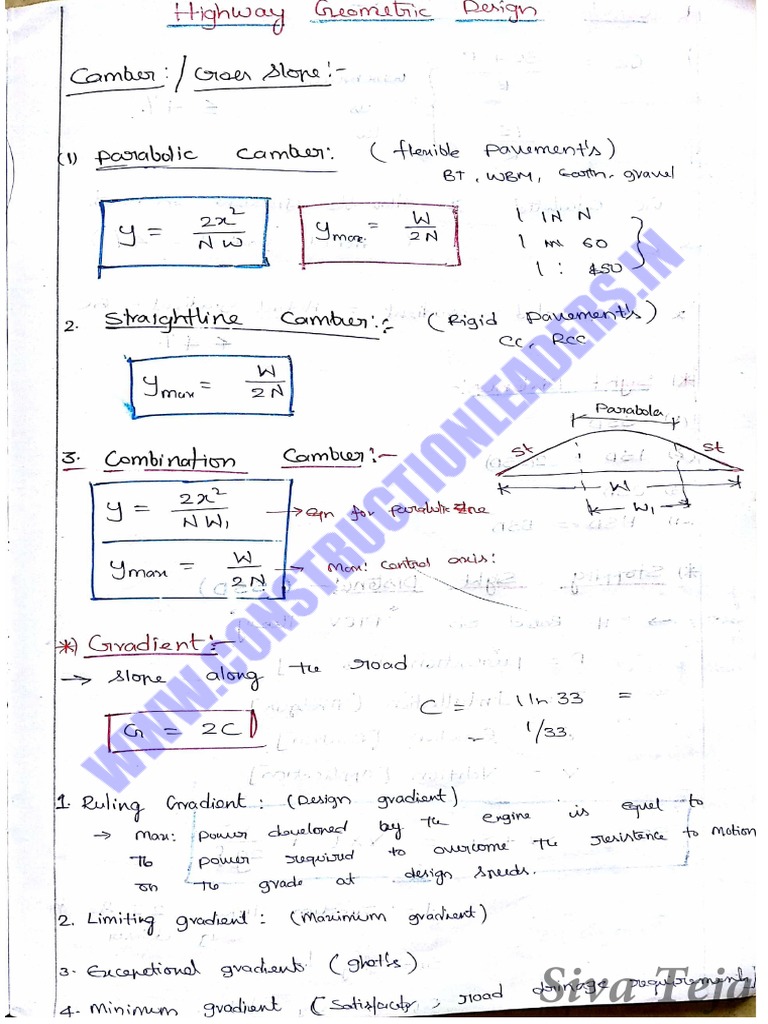 Highway Geometric Design
Camber:/ Cross slope:-
(1) Parabolic Camber: (flexible Pavement's)
BT, WBM, Earth, gravel
y = 2x²/NW
Ymax = W/2N
1 IN N
1 in 60
1 : 50
2. Straightline Camber:- (Rigid Pavement's)
CC, RCC
Ymax = W/2N
3. Combination Camber:-
Parabola
St
St
W
W₁
y = 2x²/NW₁ → eqn for parabolic
Ymax = W/2N → Max: Central axis:
*) Gradient:-
→ slope along the road
G = 2C
C = 1 In 33 =
1/33.
1. Ruling Gradient: (Design gradient)
→ Max: power developed by the engine is equal to
The power required to overcome the resistance to Motion
on the grade at design speeds.
2. Limiting gradient: (Maximum gradient)
3. Exceptional gradients (ghat's)
4. Minimum gradient, (Satisfactory, road drainage requirement)
WWW.CONSTRUCTIONLEADERS.IN
Siva Teja